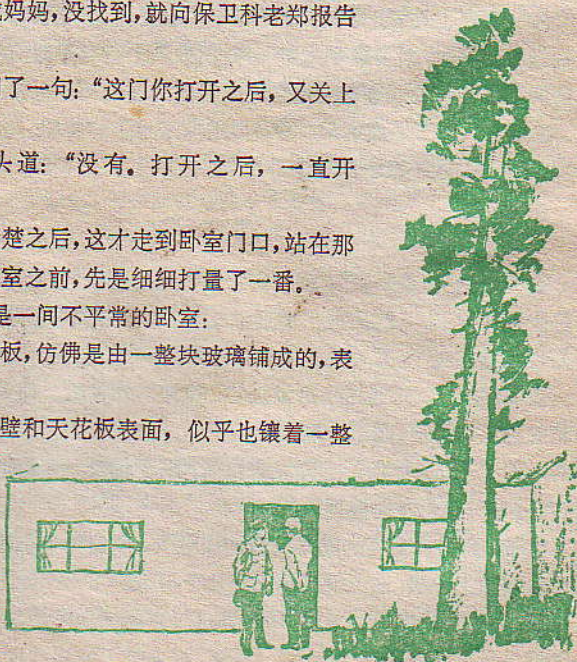 妈妈，没找到，就向保卫科老郑报告
了一句：“这门你打开之后，又关上
头道：“没有。打开之后，一直开
楚之后，这才走到卧室门口，站在那
室之前，先是细细打量了一番。
是一间不平常的卧室：
板，仿佛是由一整块玻璃铺成的，表
壁和天花板表面，似乎也镶着一整